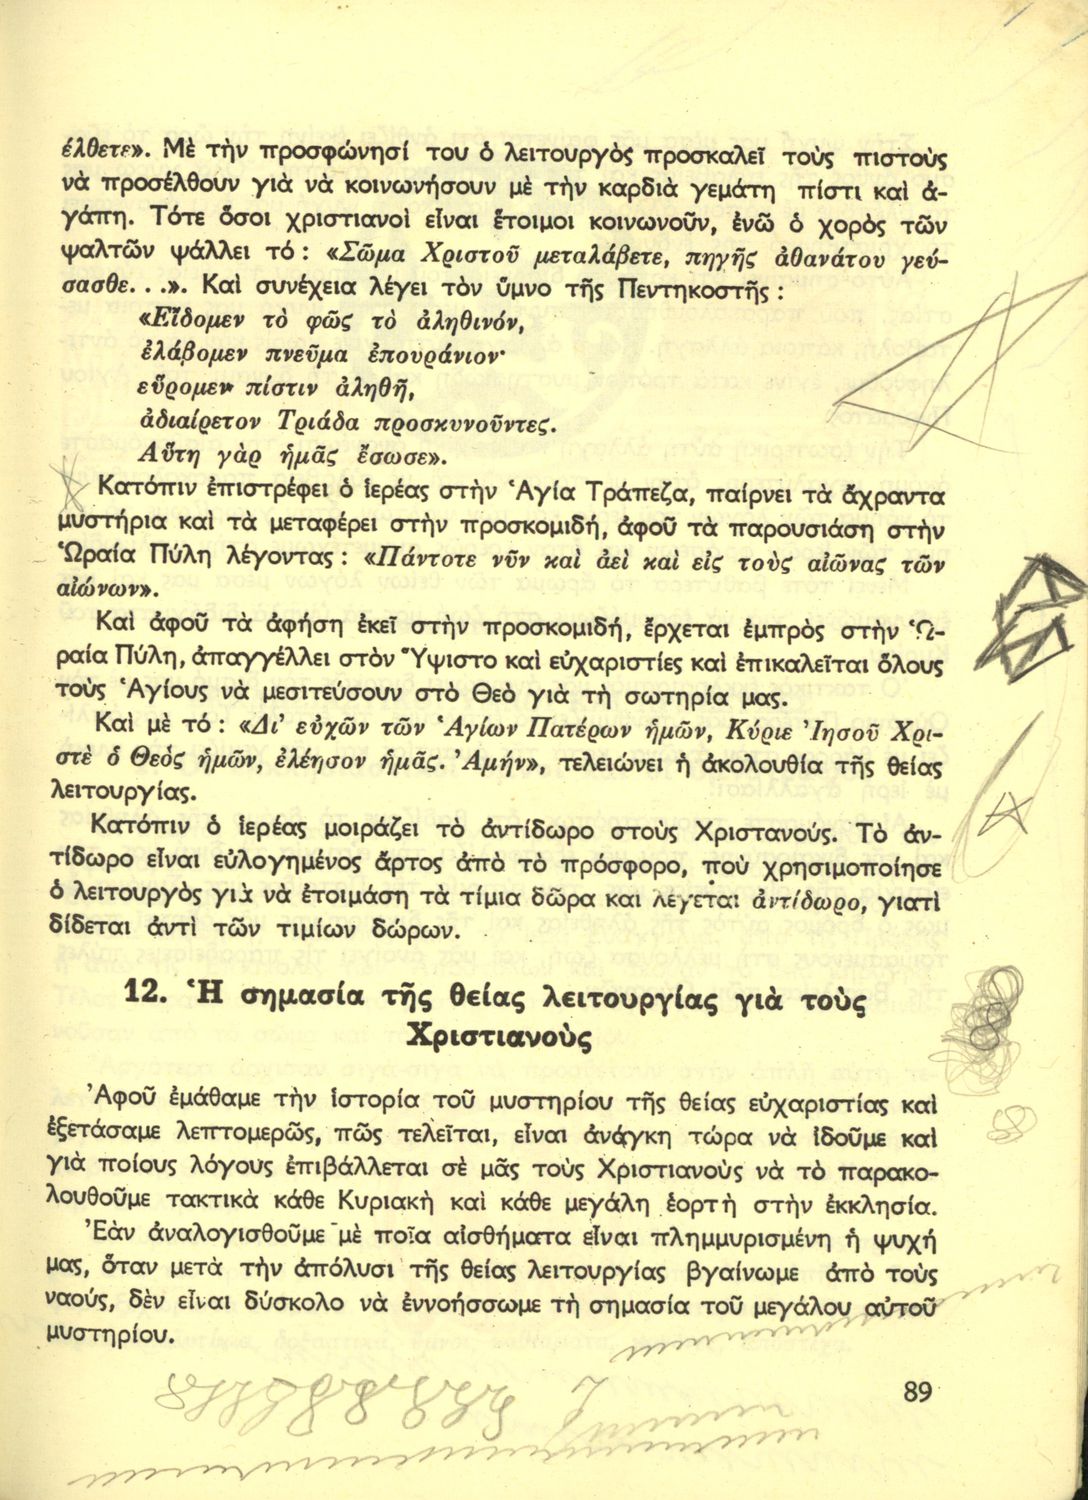 έλθετε». Μὲ τὴν προσφώνησί του ὁ λειτουργὸς προσκαλεῖ τοὺς πιστοὺς
νὰ προσέλθουν γιὰ νὰ κοινωνήσουν μὲ τὴν καρδιὰ γεμάτη πίστι καὶ ἀ-
γάπη. Τότε ὅσοι χριστιανοὶ εἶναι ἕτοιμοι κοινωνοῦν, ἐνῶ ὁ χορὸς τῶν
ψαλτῶν ψάλλει τό : «Σῶμα Χριστοῦ μεταλάβετε, πηγῆς ἀθανάτου γεύ-
σασθε. . .». Καὶ συνέχεια λέγει τὸν ὕμνο τῆς Πεντηκοστῆς :
«Εἴδομεν τὸ φῶς τὸ ἀληθινόν,
ἐλάβομεν πνεῦμα ἐπουράνιον·
εὕρομεν πίστιν ἀληθῆ,
ἀδιαίρετον Τριάδα προσκυνοῦντες.
Αὕτη γὰρ ἡμᾶς ἔσωσε».
Κατόπιν ἐπιστρέφει ὁ ἱερέας στὴν Ἁγία Τράπεζα, παίρνει τὰ ἄχραντα
μυστήρια καὶ τὰ μεταφέρει στὴν προσκομιδή, ἀφοῦ τὰ παρουσιάση στὴν
Ὡραία Πύλη λέγοντας : «Πάντοτε νῦν καὶ ἀεὶ καὶ εἰς τοὺς αἰῶνας τῶν
αἰώνων».
Καὶ ἀφοῦ τὰ ἀφήση ἐκεῖ στὴν προσκομιδή, ἔρχεται ἐμπρὸς στὴν Ὡ-
ραία Πύλη, ἀπαγγέλλει στὸν Ὕψιστο καὶ εὐχαριστίες καὶ ἐπικαλεῖται ὅλους
τοὺς Ἁγίους νὰ μεσιτεύσουν στὸ Θεὸ γιὰ τὴ σωτηρία μας.
Καὶ μὲ τό : «Δι' εὐχῶν τῶν Ἁγίων Πατέρων ἡμῶν, Κύριε Ἰησοῦ Χρι-
στὲ ὁ Θεὸς ἡμῶν, ἐλέησον ἡμᾶς. Ἀμήν», τελειώνει ἡ ἀκολουθία τῆς θείας
λειτουργίας.
Κατόπιν ὁ ἱερέας μοιράζει τὸ ἀντίδωρο στοὺς Χριστανούς. Τὸ ἀν-
τίδωρο εἶναι εὐλογημένος ἄρτος ἀπὸ τὸ πρόσφορο, ποὺ χρησιμοποίησε
ὁ λειτουργὸς γιὰ νὰ ἑτοιμάση τὰ τίμια δῶρα και λέγεται ἀντίδωρο, γιατὶ
δίδεται ἀντὶ τῶν τιμίων δώρων.
12. Ἡ σημασία τῆς θείας λειτουργίας γιὰ τοὺς
Χριστιανοὺς
Ἀφοῦ ἐμάθαμε τὴν ἱστορία τοῦ μυστηρίου τῆς θείας εὐχαριστίας καὶ
ἐξετάσαμε λεπτομερῶς, πῶς τελεῖται, εἶναι ἀνάγκη τώρα νὰ ἰδοῦμε καὶ
γιὰ ποίους λόγους ἐπιβάλλεται σὲ μᾶς τοὺς Χριστιανοὺς νὰ τὸ παρακο-
λουθοῦμε τακτικὰ κάθε Κυριακὴ καὶ κάθε μεγάλη ἑορτὴ στὴν ἐκκλησία.
Ἐὰν ἀναλογισθοῦμε μὲ ποῖα αἰσθήματα εἶναι πλημμυρισμένη ἡ ψυχή
μας, ὅταν μετὰ τὴν ἀπόλυσι τῆς θείας λειτουργίας βγαίνωμε ἀπὸ τοὺς
ναούς, δὲν εἶναι δύσκολο νὰ ἐννοήσσωμε τὴ σημασία τοῦ μεγάλου αὐτοῦ
μυστηρίου.
89